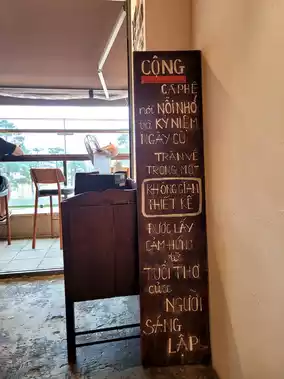 CỘNG
CÀPHÊ
nơi NỖI NHỚ
và KỶ NIỆM
NGÀY CŨ
TRÀN VỀ
TRONG MỘT
KHÔNG GIAN
THIẾT KẾ
ĐƯỢC LẤY
CẢM HỨNG
từ
TUỔI THƠ
của
NGƯỜI
SÁNG
LẬP